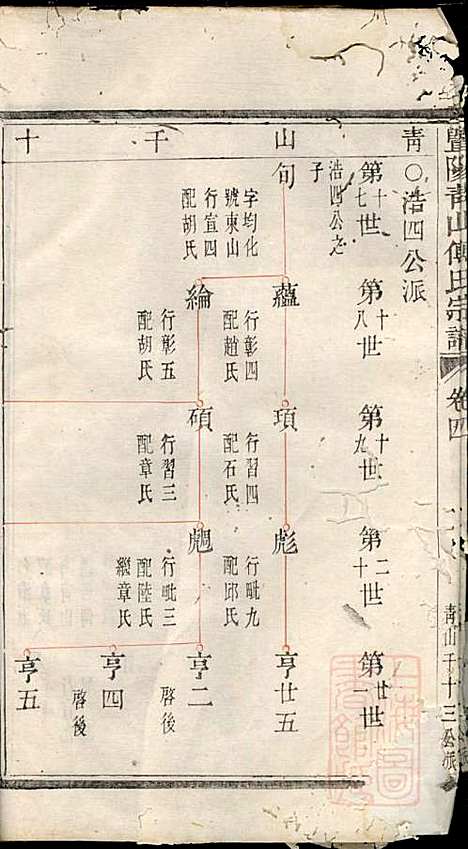 暨陽青山傅氏宗譜
卷四
青山千十三公派
青
山
千
十
○浩四公派
第十七世
第十八世
第十九世
第二十世
第廿一世
浩四公之子
旬
字均化
號東山
行宣四
配胡氏
蘊
行彰四
配趙氏
綸
行彰五
配胡氏
項
行習四
配石氏
碩
行習三
配章氏
彪
行毗九
配邱氏
行毗三
配陸氏
繼章氏
亨廿五
亨二
啓後
亨四
啓後
亨五